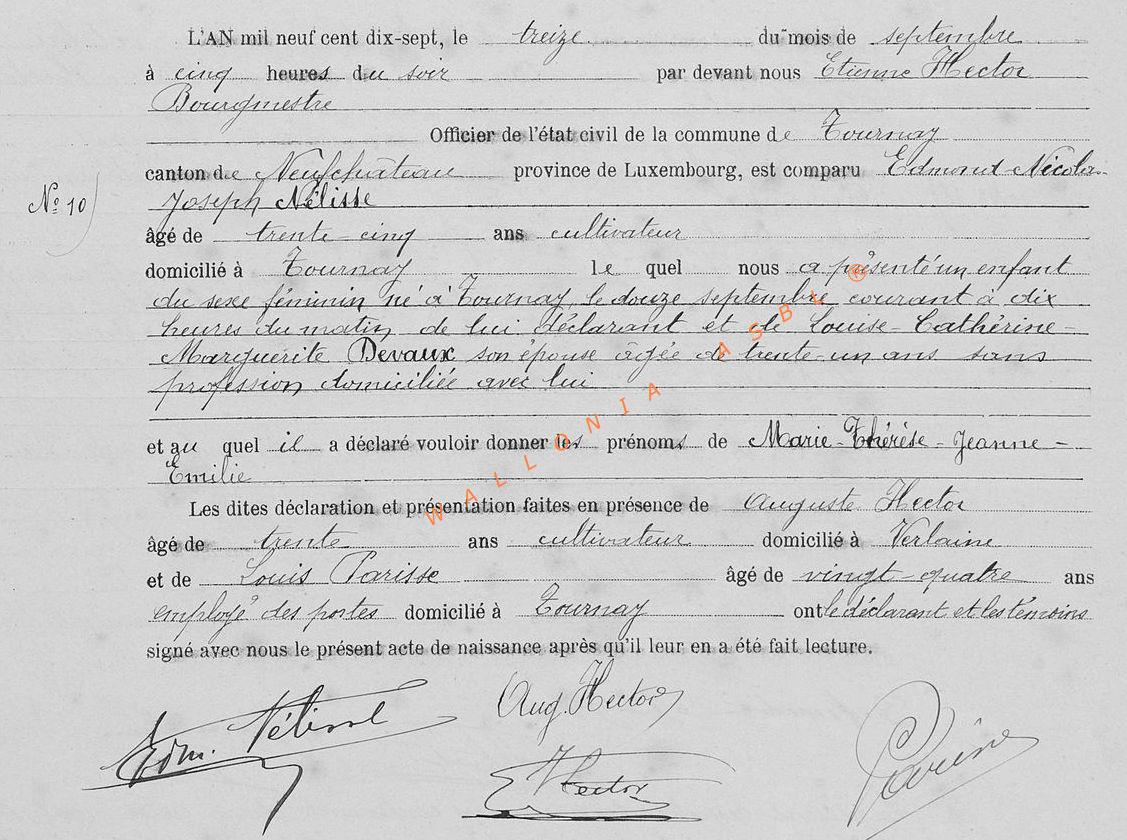 L'AN mil neuf cent dix-sept, le treize du mois de septembre
à cinq heures du soir par devant nous Etienne Hector
Bourgmestre
Officier de l'état civil de la commune de Tournay
canton de Neufchâteau province de Luxembourg, est comparu Edmond-Nicolas-
N° 10) Joseph Nélisse
âgé de trente-cinq ans cultivateur
domicilié à Tournay le quel nous a présenté un enfant
du sexe féminin né à Tournay, le douze septembre courant à dix
heures du matin, de lui déclarant et de Louise-Cathérine-
Marguerite Devaux son épouse âgée de trente-un ans sans
profession domiciliée avec lui
et au quel il a déclaré vouloir donner les prénoms de Marie-Thérèse-Jeanne-
Emilie
Les dites déclaration et présentation faites en présence de Auguste Hector
âgé de trente ans cultivateur domicilié à Verlaine
et de Louis Parisse âgé de vingt-quatre ans
employé des postes domicilié à Tournay ont le déclarant et les témoins
signé avec nous le présent acte de naissance après qu'il leur en a été fait lecture.
Edm. Nélisse Aug. Hector
Hector
WALLONIA ASBL ®